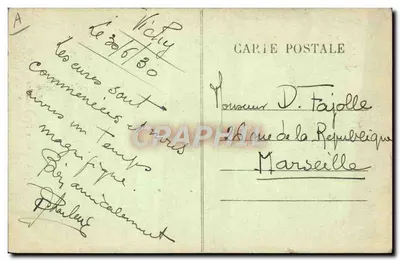 A
Vichy
Le 30/6/30
Les cures sont
commencées et nous
avons un temps
magnifique.
Bien amicalement
CARTE POSTALE
Monsieur D. Fajolle
26 rue de la République
Marseille
CPARAMA.COM